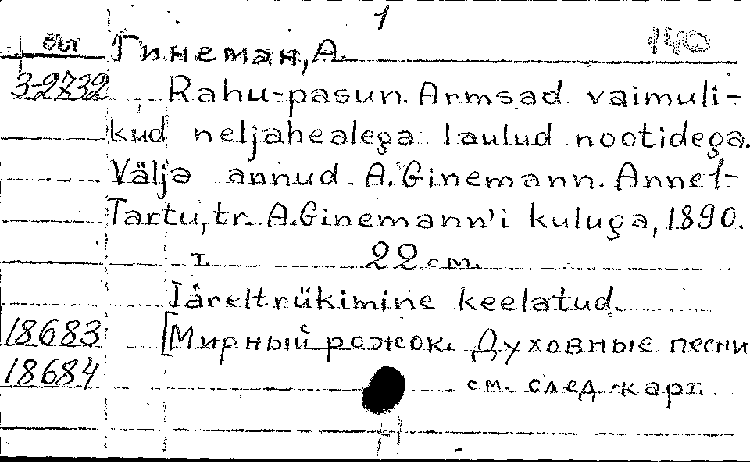 1
Гинеман, А. 140
3-2732 Rahu-pasun. Armsad vaimuli-
kud neljahealega laulud nootidega.
Välja annud A. Ginemann. Annet-
Tartu, tr. A. Ginemann'i kuluga, 1890.
т. 22 см.
Järeltrükimine keelatud.
18683 [Мирный рожок. Духовные песни
18684 см. след. карт.